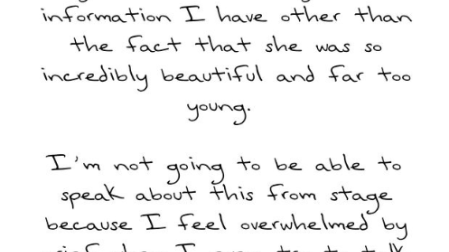 information I have other than
the fact that she was so
incredibly beautiful and far too
young.
I'm not going to be able to
speak about this from stage
because I feel overwhelmed by